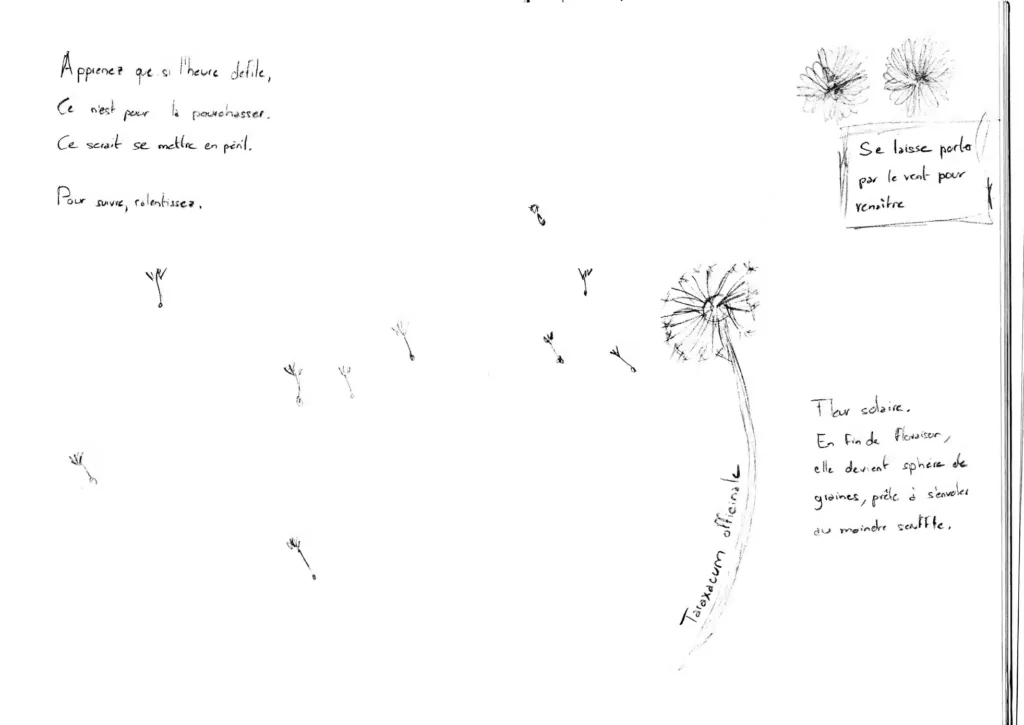 Apprenez que si l'heure défile,
Ce n'est pour la pourchasser.
Ce serait se mettre en péril.
Pour suivre, ralentissez.
Se laisse porter
par le vent pour
renaître
Fleur solaire.
En fin de floraison,
elle devient sphère de
graines, prête à s'envoler
au moindre souffle.
Taraxacum officinale